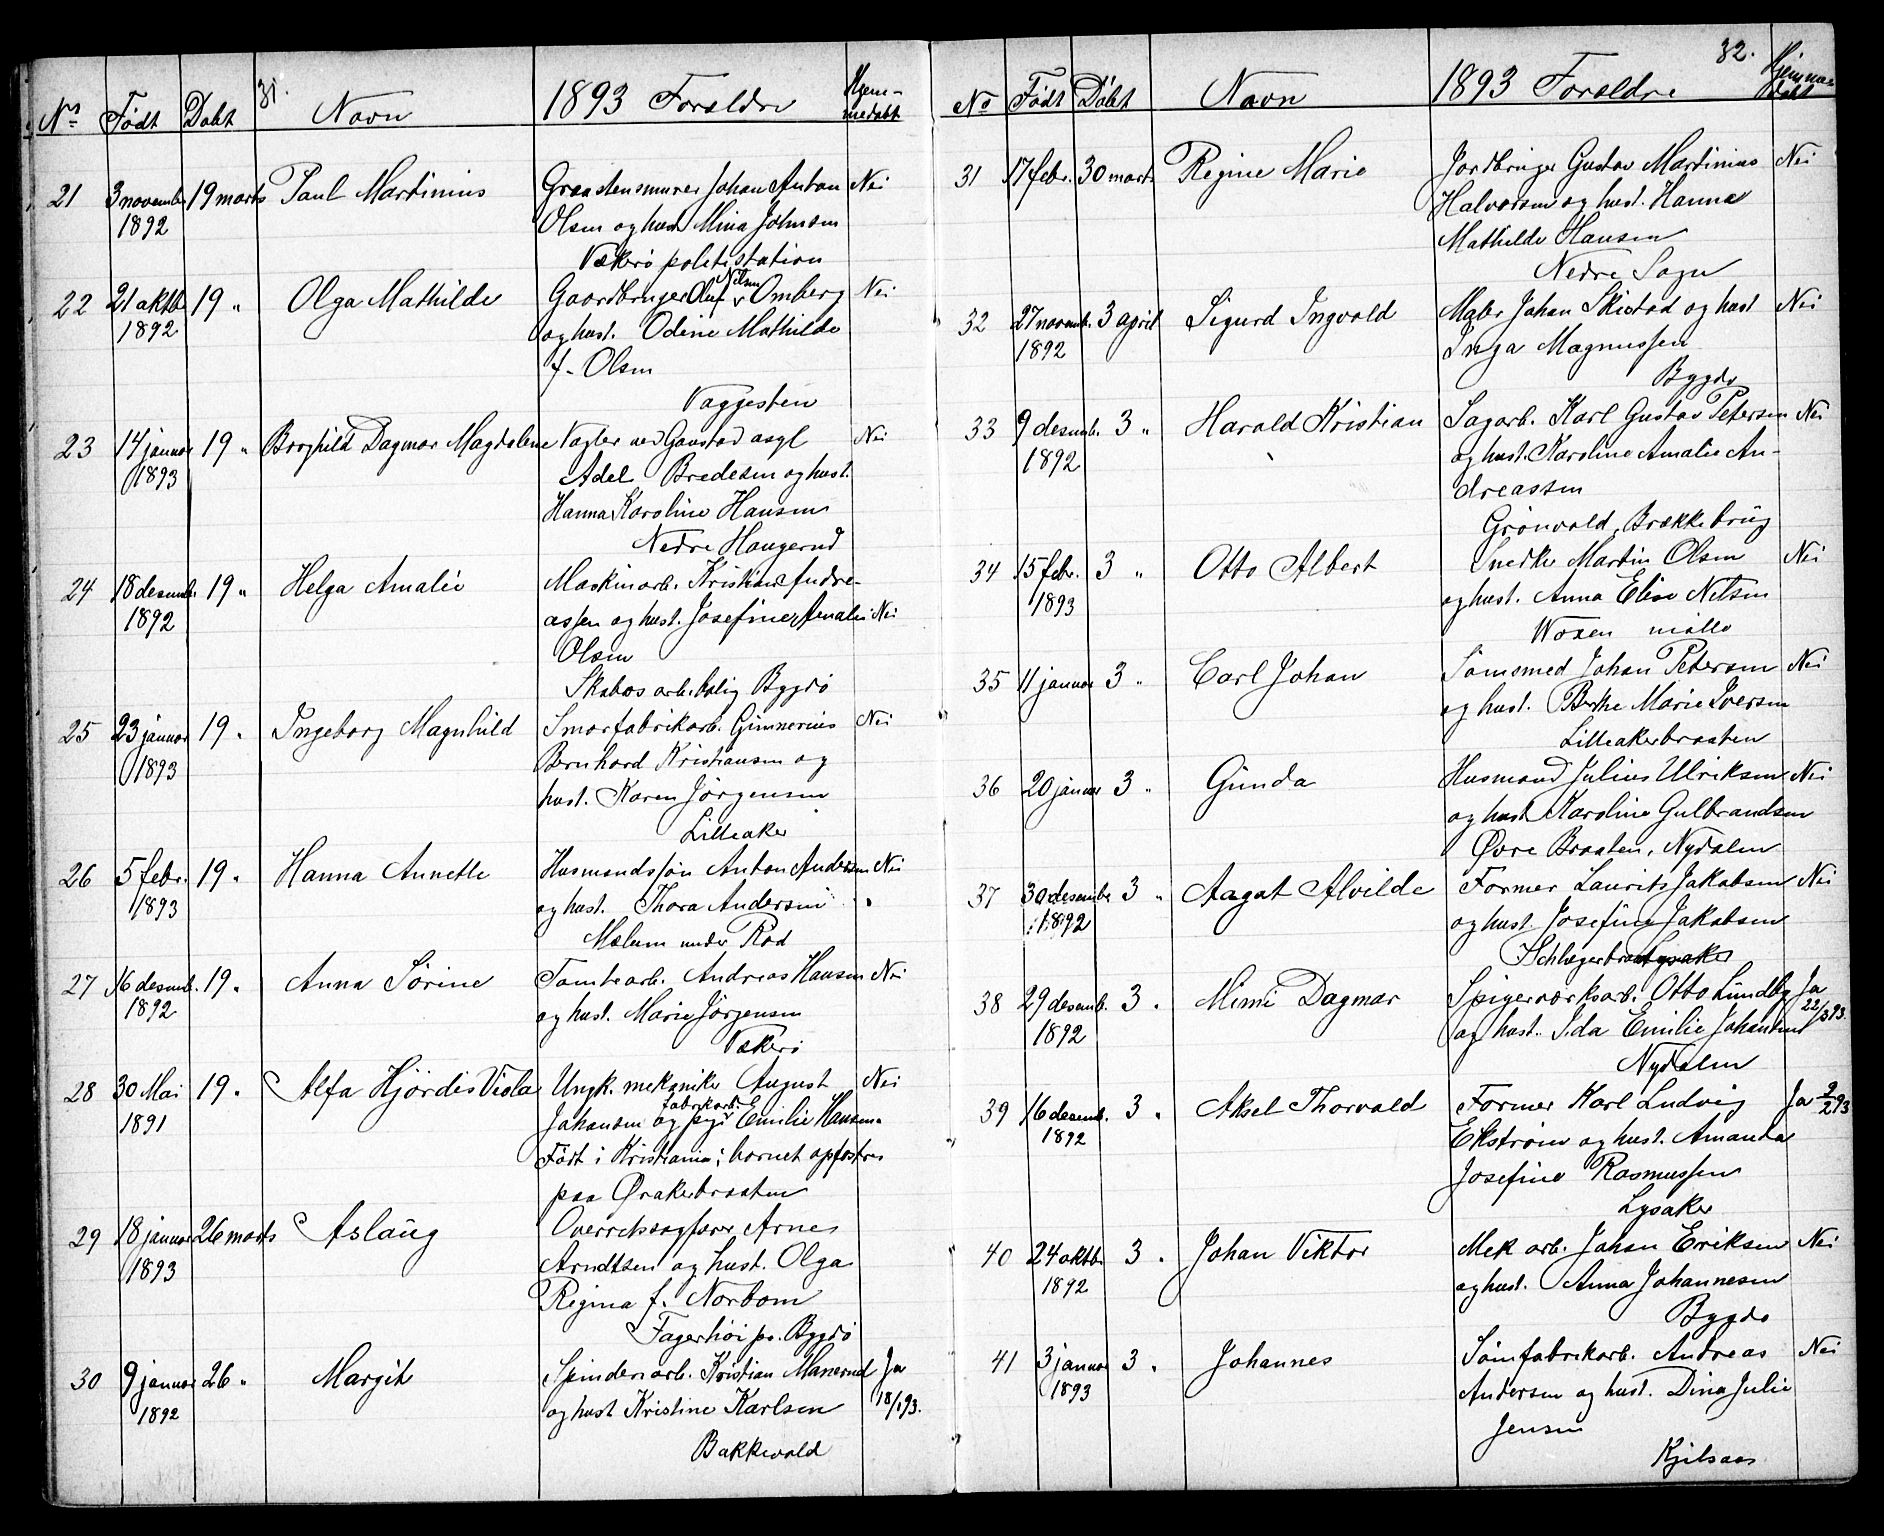 31.
No Født Døbt Navn 1893 Forældre Hjem-
medøbt
21 3 november 19 marts Paul Martinius Graastensmurer Johan Anton Nei
1892 Olsen og hust. Mina Johnsen
Vækerø politistation
22 21 oktb. 19 " Olga Mathilde Gaardbruger Oluf Nilsen Omberg Nei
1892 og hust. Odine Mathilde
f. Olsen
Vaggesten
23 14 januar 19 " Borghild Dagmar Magdalene Vogter ved Gaustad asyl Nei
1893 Adel Bredesen og hust.
Hanna Karoline Hansen
Nedre Haugerud
24 18 desemb. 19 " Helga Amalie Maskinarb. Kristian Andre-
1892 assen og hust. Josefine Amalie Nei
Olsen
Skabos arb.bolig Bygdø
25 23 januar 19 " Ingeborg Magnhild Smørfabrikarb. Gunnerius Nei
1893 Bernhard Kristiansen og
hust. Karen Jørgensen
Lilleaker
26 5 febr. 19 " Hanna Annette Husmandssøn Anton Andersen Nei
1893 og hust. Thora Andersen
Mælum under Rød
27 16 desemb. 19 " Anna Sørine Tomtearb. Andreas Hansen Nei
1892 og hust. Marie Jørgensen
Vækerø
28 30 Mai 19 " Alfa Hjørdis Viola Ungk. mekaniker August Nei
1891 Johansen og fabrikarb. pige Emilie Hansen.
Født i Kristiania; barnet opfostres
paa Ørakerbraaten
29 18 januar 26 marts Aslaug Overretssagfører Arne
1893 Arndtsen og hust. Olga
Regina f. Norbom
Fagerhøi pr. Bygdø
30 9 januar 26 " Margit Spinderiarb. Kristian Manerud Ja
1892 og hust Kristine Karlsen 18/1 93.
Bakkevold
32.
No Født Døbt Navn 1893 Forældre Hjemme-
døbt
31 17 febr. 30 marts Regine Marie Jordbruger Gustav Martinius Nei
Halvorsen og hust. Hanna
Mathilde Hansen
Nedre Sogn
32 27 novemb. 3 april Sigurd Ingvald Maler Johan Skistad og hust Nei
1892 Inga Magnussen
Bygdø
33 9 desemb. 3 " Harald Kristian Sagarb. Karl Gustav Petersen Nei
1892 og hust. Karoline Amalie An-
dreassen
Grønvold, Brækkebrug
34 15 febr. 3 " Otto Albert Snedker Martin Olsen Nei
1893 og hust. Anna Elise Nilsen
Woxen mølle
35 11 januar 3 " Carl Johan Sømsmed Johan Petersen Nei
og hust. Berthe Marie Iversen
Lilleakerbraaten
36 20 januar 3 " Gunda Husmand Julius Ulriksen Nei
og hust Karoline Gulbrandsen
Øvre Braaten, Nydalen
37 30 desember 3 " Aagot Alvilde Former Laurits Jakobsen Nei
1892 og hust. Josefine Jakobsen
Lysaker
38 29 desemb. 3 " Mimi Dagmar Spigerverksarb. Otto Lundby Ja
1892 og hust. Ida Emilie Johansen 22/3 93.
Nydalen
39 16 desemb. 3 " Aksel Thorvald Former Karl Ludvig Ja 9/2 93
1892 Ekstrøm og hust. Amanda
Josefine Rasmussen
Lysaker
40 24 oktbr. 3 " Johan Viktor Mek arb. Johan Eriksen Nei
1892 og hust. Anna Johannesen
Bygdø
41 3 januar 3 " Johannes Sømfabrikarb. Andreas Nei
1893 Andersen og hust. Dina Julie
Jensen
Kjelsaas